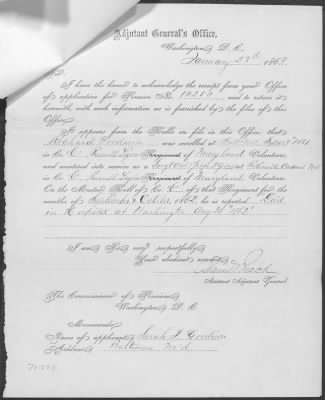 Adjutant General's Office,
Washington, D. C.
January 23d 1863
Sir:
I have the honor to acknowledge the receipt from your Office
of application for Pension No. 10218 and to return it
herewith, with such information as is furnished by the files of this
Office.
It appears from the Rolls on file in this Office, that
Goodwin was enrolled at
in Co. C. Purnell Legion Regiment of Maryland Volunteers,
and mustered into service as a
in Co. C Purnell Legion Regiment of Maryland Volunteers.
On the Muster Roll of Co. C of that Regiment for the
months of October, 1862, he is reported Died
in Hospital at Washington Aug 31 1862
I am, Sir, very respectfully,
Your obedient servant,
Assistant Adjutant General.
The Commissioner of Pensions,
Washington, D. C.
Memoranda:
Name of applicant, Sarah J Goodwin
Address, Baltimore Md